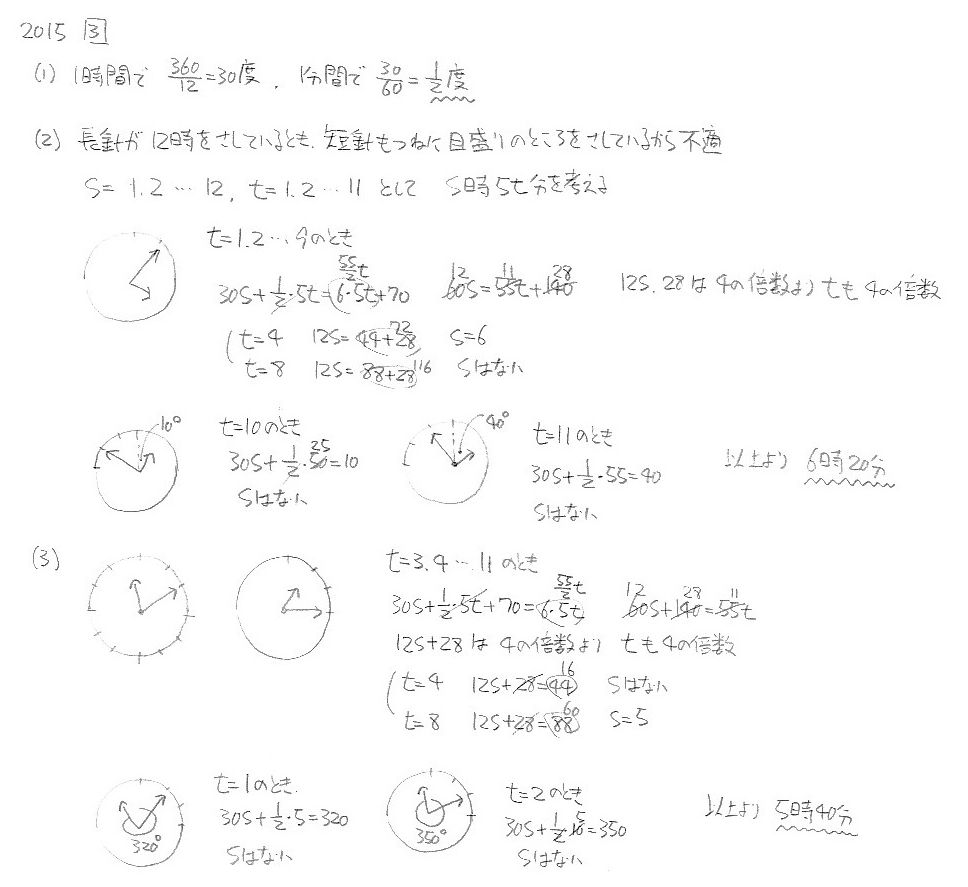 2015 3
(1) 1時間で 360/12=30度, 1分間で 30/60=1/2度
(2) 長針が12時をさしているとき、短針もつねに目盛りのところをさしているから不適
S=1.2…12, t=1.2…11 として S時5t分を考える
t=1.2…9のとき
55/2t
30S+1/2・5t=6・5t+70 60S=55t+140 12 11 28 12S.28は4の倍数よりtも4の倍数
t=4 12S=44+28 72 S=6
t=8 12S=88+28 116 Sはない
10°
t=10のとき
30S+1/2・50=10 25
Sはない
40°
t=11のとき
30S+1/2・55=40
Sはない
以上より 6時20分
(3)
t=3.4…11のとき
55/2t
30S+1/2・5t+70=6・5t 60S+140=55t 12 28 11
12S+28は4の倍数より tも4の倍数
t=4 12S+28=44 16 Sはない
t=8 12S+28=88 60 S=5
320°
t=1のとき.
30S+1/2・5=320
Sはない
350°
t=2のとき
30S+1/2・10=350 5
Sはない
以上より 5時40分